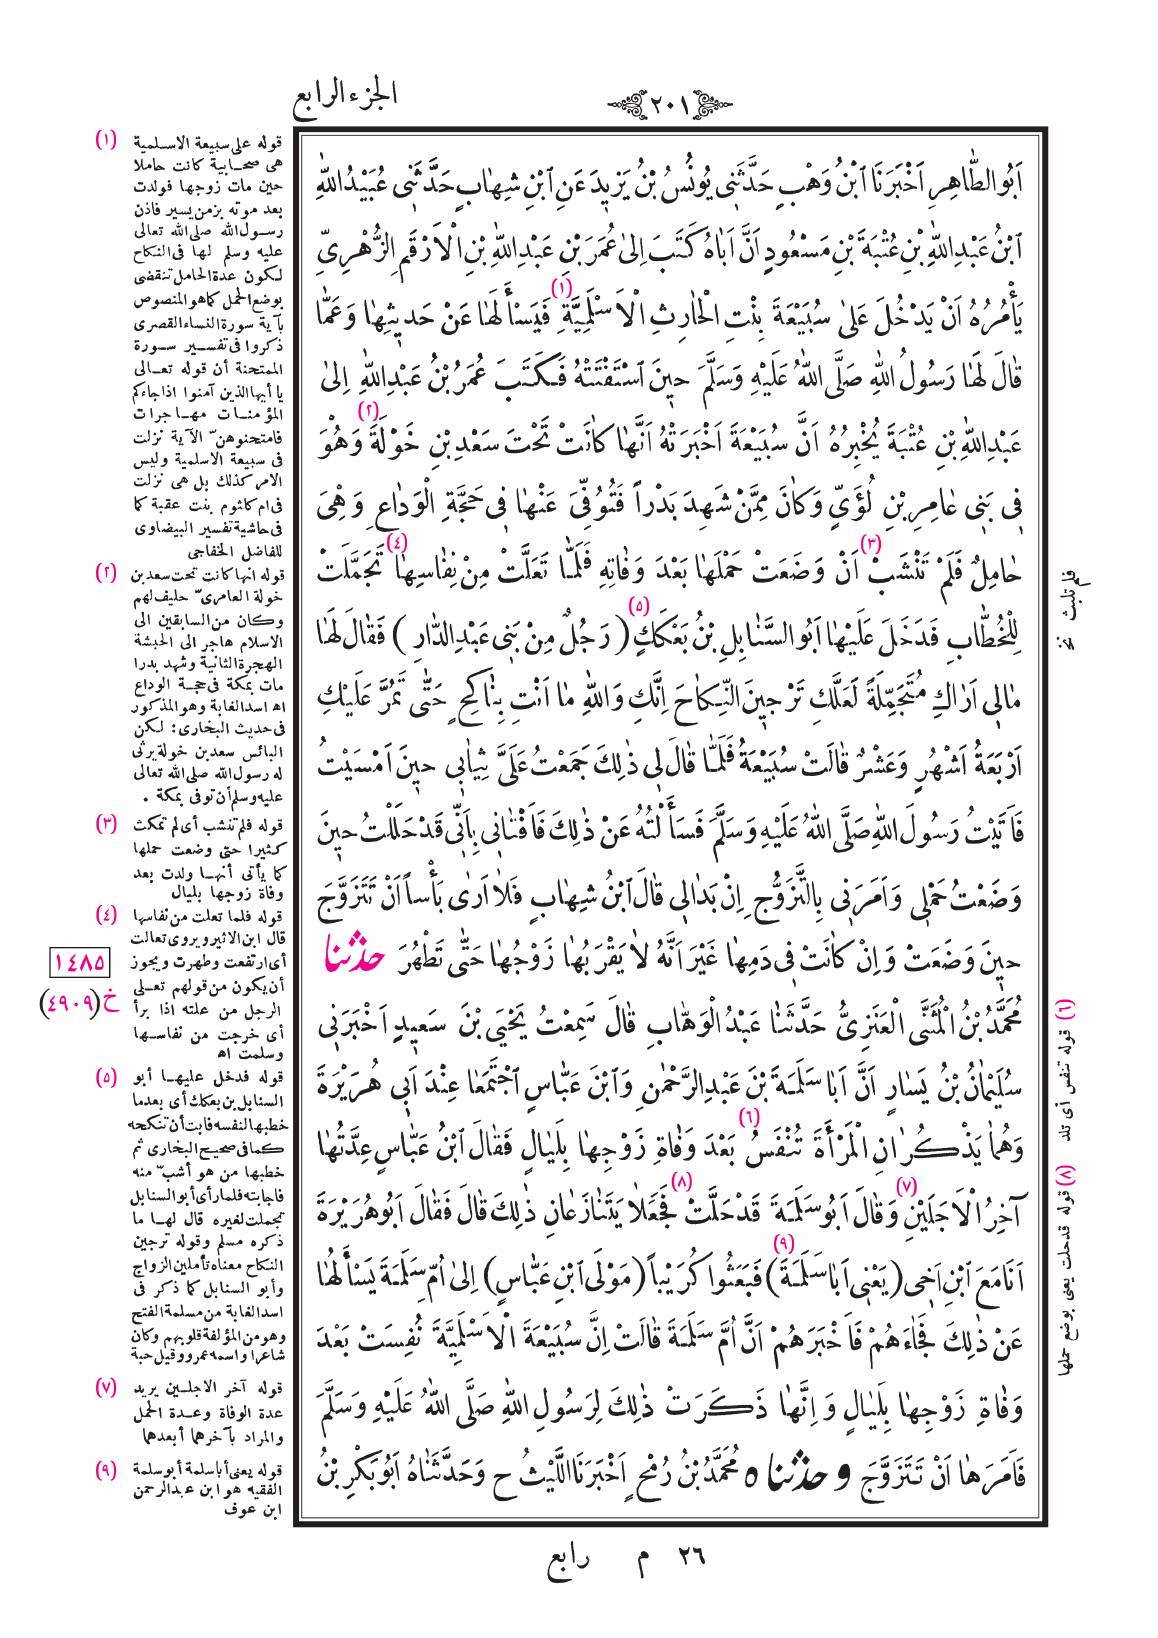 الجزء الرابع
٢٠١
اَبُو الطَّاهِرِ اَخْبَرَنَا ابْنُ وَهْبٍ حَدَّثَنِى يُونُسُ بْنُ يَزِيدَ عَنِ ابْنِ شِهَابٍ حَدَّثَنِى عُبَيْدُ اللهِ
ابْنُ عَبْدِ اللهِ بْنِ عُتْبَةَ بْنِ مَسْعُودٍ اَنَّ اَبَاهُ كَتَبَ اِلىٰ عُمَرَ بْنِ عَبْدِ اللهِ بْنِ الْاَرْقَمِ الزُّهْرِىِّ
يَأْمُرُهُ اَنْ يَدْخُلَ عَلىٰ سُبَيْعَةَ بِنْتِ الْحَارِثِ الْاَسْلَمِيَّةِ (١) فَيَسْأَلَهَا عَنْ حَدِيثِهَا وَعَمَّا
قَالَ لَهَا رَسُولُ اللهِ صَلَّى اللهُ عَلَيْهِ وَسَلَّمَ حِينَ اسْتَفْتَتْهُ فَكَتَبَ عُمَرُ بْنُ عَبْدِ اللهِ اِلىٰ
عَبْدِ اللهِ بْنِ عُتْبَةَ يُخْبِرُهُ اَنَّ سُبَيْعَةَ اَخْبَرَتْهُ اَنَّهَا كَانَتْ تَحْتَ سَعْدِ بْنِ خَوْلَةَ (٢) وَهُوَ
فِى بَنِى عَامِرِ بْنِ لُؤَىٍّ وَكَانَ مِمَّنْ شَهِدَ بَدْراً فَتُوُفِّىَ عَنْهَا فِى حَجَّةِ الْوَدَاعِ وَهِىَ
حَامِلٌ فَلَمْ تَنْشَبْ (٣) اَنْ وَضَعَتْ حَمْلَهَا بَعْدَ وَفَاتِهِ فَلَمَّا تَعَلَّتْ مِنْ نِفَاسِهَا (٤) تَجَمَّلَتْ
لِلْخُطَّابِ فَدَخَلَ عَلَيْهَا اَبُو السَّنَابِلِ بْنُ بَعْكَكٍ (٥) (رَجُلٌ مِنْ بَنِى عَبْدِ الدَّارِ) فَقَالَ لَهَا
مَالِى اَرَاكِ مُتَجَمِّلَةً لَعَلَّكِ تَرْجِينَ النِّكَاحَ اِنَّكِ وَاللهِ مَا اَنْتِ بِنَاكِحٍ حَتَّى تَمُرَّ عَلَيْكِ
اَرْبَعَةُ اَشْهُرٍ وَعَشْرٌ قَالَتْ سُبَيْعَةُ فَلَمَّا قَالَ لِى ذٰلِكَ جَمَعْتُ عَلَىَّ ثِيَابِى حِينَ اَمْسَيْتُ
فَاَتَيْتُ رَسُولَ اللهِ صَلَّى اللهُ عَلَيْهِ وَسَلَّمَ فَسَأَلْتُهُ عَنْ ذٰلِكَ فَاَفْتَانِى بِاَنِّى قَدْ حَلَلْتُ حِينَ
وَضَعْتُ حَمْلِى وَاَمَرَنِى بِالتَّزَوُّجِ اِنْ بَدَالِى قَالَ ابْنُ شِهَابٍ فَلاَ اَرىٰ بَأْساً اَنْ تَتَزَوَّجَ
حِينَ وَضَعَتْ وَاِنْ كَانَتْ فِى دَمِهَا غَيْرَ اَنَّهُ لاَ يَقْرَبُهَا زَوْجُهَا حَتَّى تَطْهُرَ حدثنا
مُحَمَّدُ بْنُ الْمُثَنَّى الْعَنَزِىُّ حَدَّثَنَا عَبْدُ الْوَهَّابِ قَالَ سَمِعْتُ يَحْيَى بْنَ سَعِيدٍ اَخْبَرَنِى
سُلَيْمَانُ بْنُ يَسَارٍ اَنَّ اَبَا سَلَمَةَ بْنَ عَبْدِ الرَّحْمٰنِ وَابْنَ عَبَّاسٍ اجْتَمَعَا عِنْدَ اَبِى هُرَيْرَةَ
وَهُمَا يَذْكُرَانِ الْمَرْأَةَ تُنْفَسُ (٦) بَعْدَ وَفَاةِ زَوْجِهَا بِلَيَالٍ فَقَالَ ابْنُ عَبَّاسٍ عِدَّتُهَا
آخِرُ الْاَجَلَيْنِ (٧) وَقَالَ اَبُو سَلَمَةَ قَدْ حَلَّتْ (٨) فَجَعَلاَ يَتَنَازَعَانِ ذٰلِكَ قَالَ فَقَالَ اَبُو هُرَيْرَةَ
اَنَا مَعَ ابْنِ اَخِى (يَعْنِى اَبَا سَلَمَةَ) (٩) فَبَعَثُوا كُرَيْباً (مَوْلَى ابْنِ عَبَّاسٍ) اِلىٰ اُمِّ سَلَمَةَ يَسْأَلُهَا
عَنْ ذٰلِكَ فَجَاءَهُمْ فَاَخْبَرَهُمْ اَنَّ اُمَّ سَلَمَةَ قَالَتْ اِنَّ سُبَيْعَةَ الْاَسْلَمِيَّةَ نُفِسَتْ بَعْدَ
وَفَاةِ زَوْجِهَا بِلَيَالٍ وَاِنَّهَا ذَكَرَتْ ذٰلِكَ لِرَسُولِ اللهِ صَلَّى اللهُ عَلَيْهِ وَسَلَّمَ
فَاَمَرَهَا اَنْ تَتَزَوَّجَ وحدثناه مُحَمَّدُ بْنُ رُمْحٍ اَخْبَرَنَا اللَّيْثُ ح وَحَدَّثَنَاهُ اَبُو بَكْرِ بْنُ
٢٦ م رابع
(١) قوله على سبيعة الاسلمية
هى صحابية كانت حاملا
حين مات زوجها فولدت
بعد موته بزمن يسير فاذن
رسول الله صلى الله تعالى
عليه وسلم لها فى النكاح
لكون عدة الحامل تنقضى
بوضع الحمل كما هو المنصوص
بآية سورة النساء القصرى
ذكروا فى تفسير سورة
الممتحنة أن قوله تعالى
يا أيها الذين آمنوا اذا جاءكم
المؤمنات مهاجرات
فامتحنوهنّ الآية نزلت
فى سبيعة الاسلمية وليس
الامر كذلك بل هى نزلت
فى ام كلثوم بنت عقبة كما
فى حاشية تفسير البيضاوى
للفاضل الخفاجى
(٢) قوله انها كانت تحت سعد بن
خولة العامرىّ حليف لهم
وكان من السابقين الى
الاسلام هاجر الى الحبشة
الهجرة الثانية وشهد بدرا
مات بمكة فى حجة الوداع
اه اسد الغابة وهو المذكور
فى حديث البخارى: لكن
البائس سعد بن خولة يرثى
له رسول الله صلى الله تعالى
عليه وسلم أن توفى بمكة .
(٣) قوله فلم تنشب أى لم تمكث
كثيرا حتى وضعت حملها
كما يأتى أنها ولدت بعد
وفاة زوجها بليال
(٤) قوله فلما تعلت من نفاسها
قال ابن الاثير ويروى تعالت
أى ارتفعت وطهرت ويجوز
أن يكون من قولهم تعلى
الرجل من علته اذا برأ
أى خرجت من نفاسها
وسلمت اه
(٥) قوله فدخل عليها أبو
السنابل بن بعكك أى بعد ما
خطبها لنفسه فابت أن تنكحه
كما فى صحيح البخارى ثم
خطبها من هو أشبّ منه
فاجابته فلما رأى أبو السنابل
تجملت لغيره قال لها ما
ذكره مسلم وقوله ترجين
النكاح معناه تأملين الزواج
وأبو السنابل كما ذكر فى
اسد الغابة من مسلمة الفتح
وهو من المؤلفة قلوبهم وكان
شاعرا واسمه عمرو وقيل حبة
(٧) قوله آخر الاجلين يريد
عدة الوفاة وعدة الحمل
والمراد بآخرهما أبعدهما
(٩) قوله يعنى أبا سلمة أبو سلمة
الفقيه هو ابن عبد الرحمن
ابن عوف
١٤٨٥
خ (٤٩٠٩)
فلم تلبث نخ
(٦) قوله تنفس أى تلد
(٨) قوله قد حلت يعنى بوضع حملها